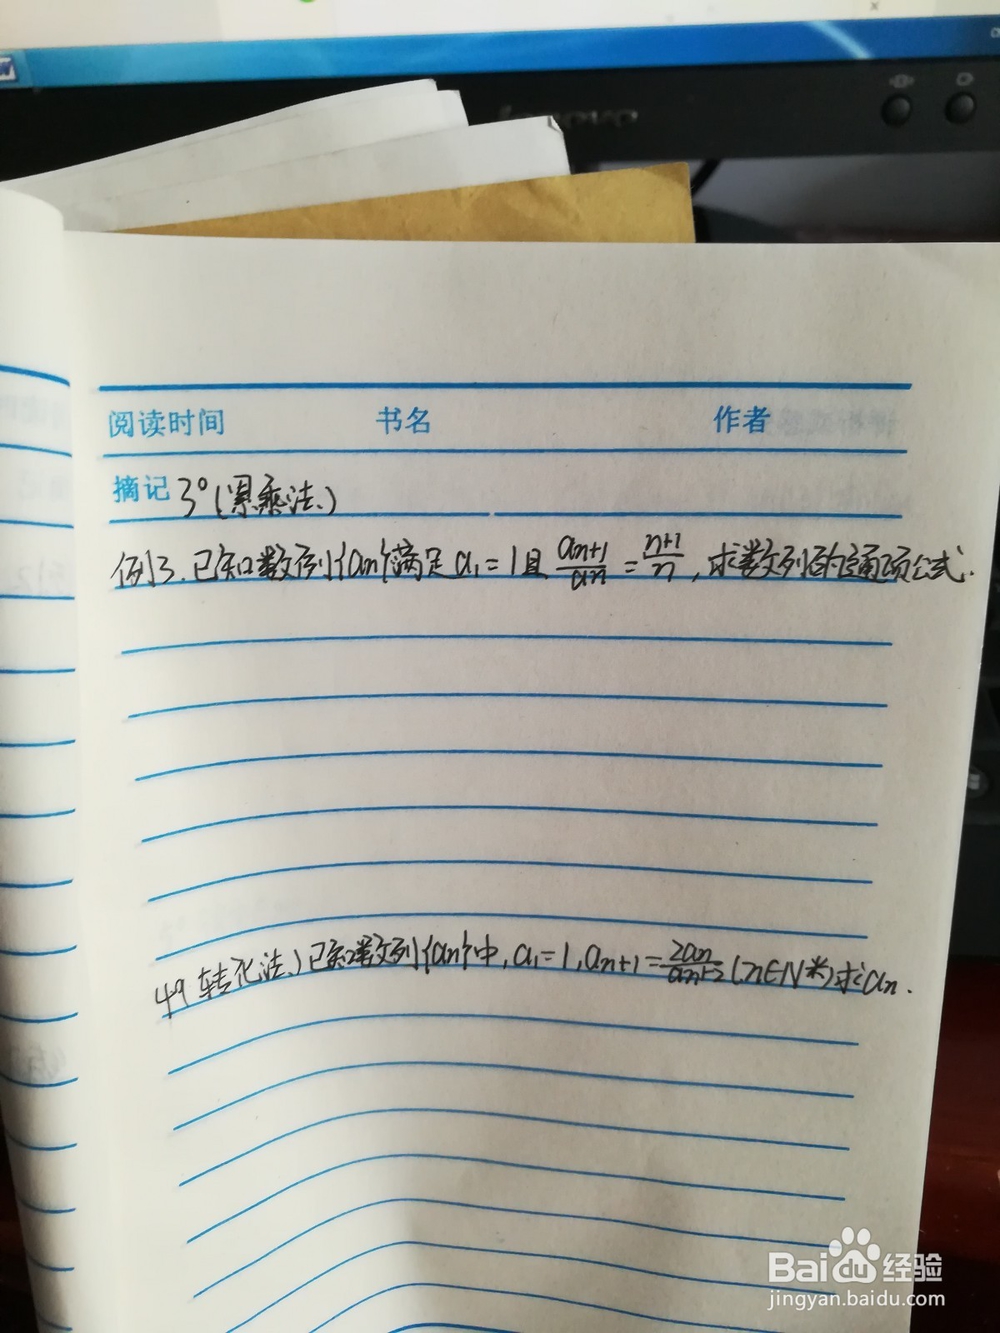 lenovo
阅读时间 书名 作者
摘记 3°(累乘法)
例3.已知数列{an}满足a₁=1且an+1/an=n+1/n,求数列的通项公式.
4°(转化法)已知数列{an}中,a₁=1,an+1=2an/an+2(n∈N*)求an.
Baidu经验
jingyan.baidu.com